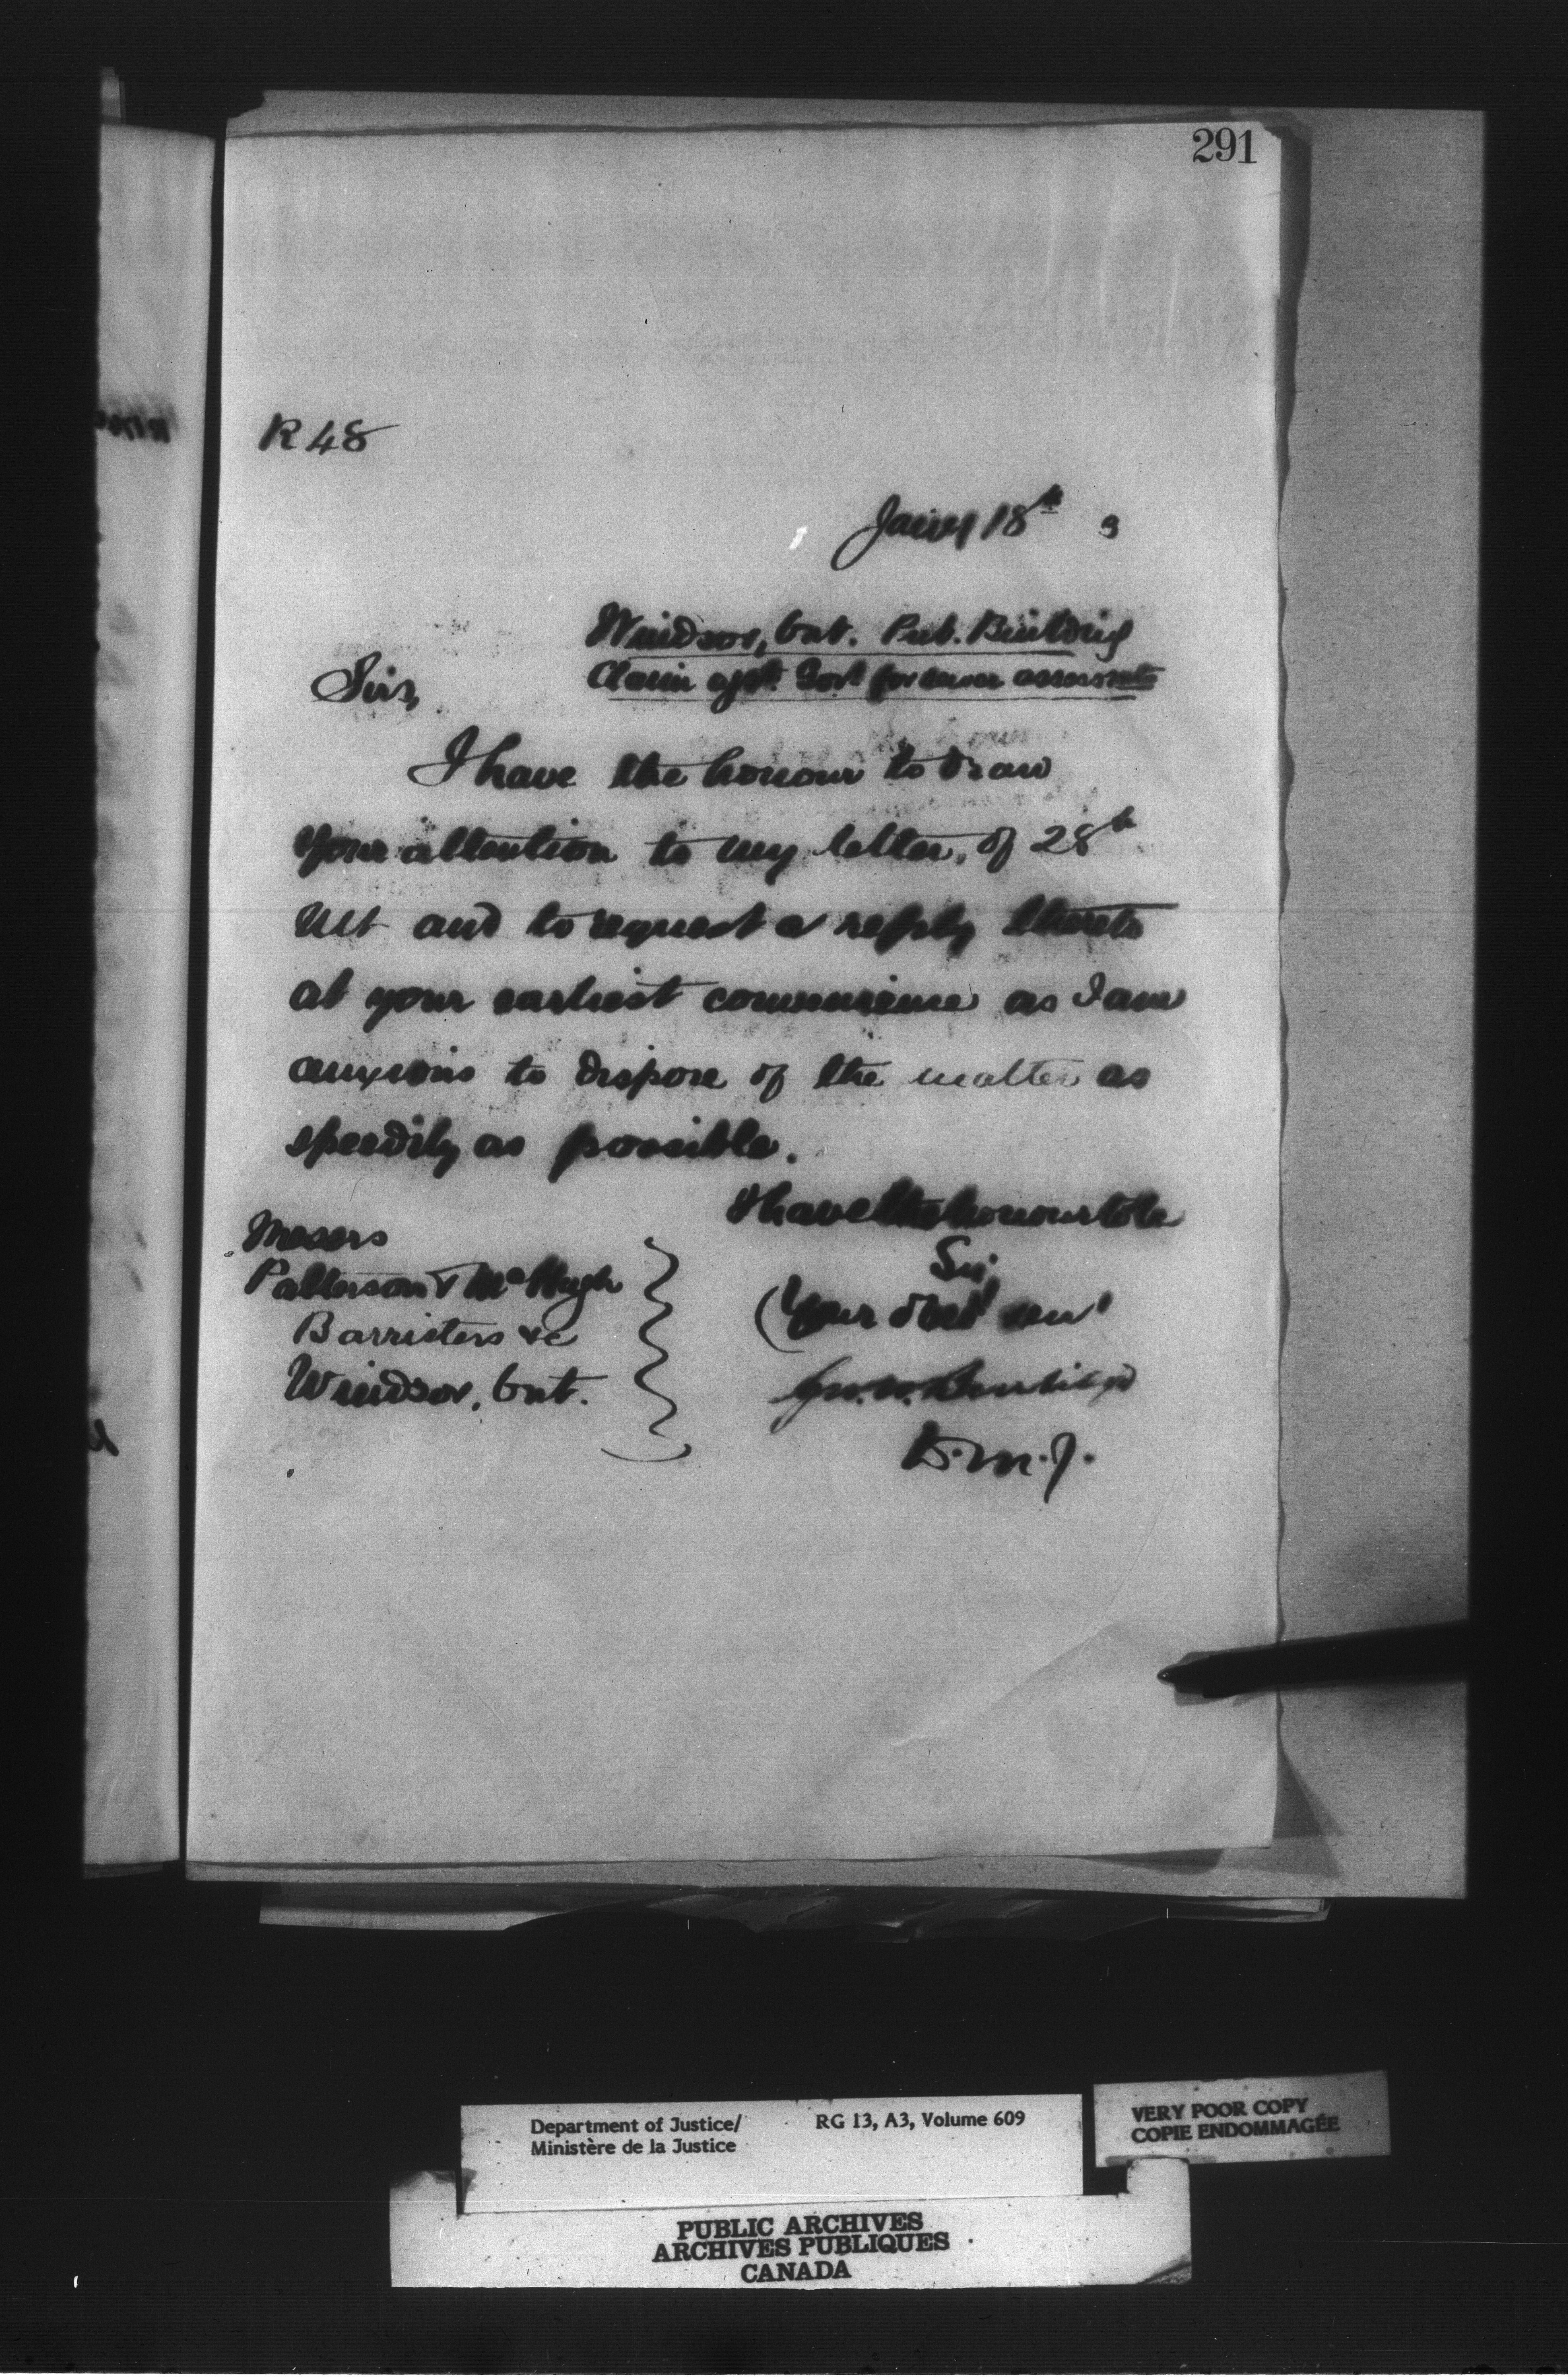 291
R 48
Jany 18th 9
Windsor, Ont. Pub. Building
Claim agst. Govt for sewer assessmts
Sirs,
I have the honour to draw
your attention to my letter, of 28th
Ult and to request a reply thereto
at your earliest convenience as I am
anxious to dispose of the matter as
speedily as possible.
I have the honour to be
Sir,
Your obedt servt
Geo. W. Burbidge
D.M.J.
Messrs
Patterson & McHugh
Barristers &c
Windsor, Ont.
Department of Justice/
Ministère de la Justice
RG 13, A3, Volume 609
VERY POOR COPY
COPIE ENDOMMAGÉE
PUBLIC ARCHIVES
ARCHIVES PUBLIQUES
CANADA